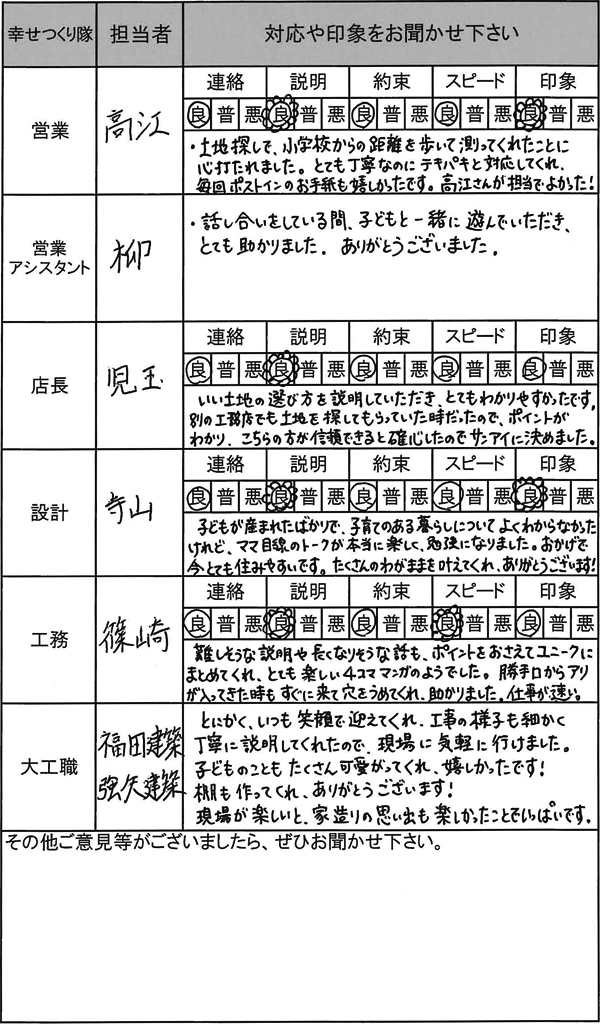 幸せつくり隊 担当者 対応や印象をお聞かせ下さい
営業 高江
連絡 説明 約束 スピード 印象
良 普 悪 良 普 悪 良 普 悪 良 普 悪 良 普 悪
・土地探しで、小学校からの距離を歩いて測ってくれたことに
心打たれました。とても丁寧なのにテキパキと対応してくれ、
毎回ポストインのお手紙も嬉しかったです。高江さんが担当でよかった!
営業
アシスタント 柳
・話し合いをしている間、子どもと一緒に遊んでいただき、
とても助かりました。ありがとうございました。
店長 児玉
連絡 説明 約束 スピード 印象
良 普 悪 良 普 悪 良 普 悪 良 普 悪 良 普 悪
いい土地の選び方を説明していただき、とてもわかりやすかったです。
別の工務店でも土地を探してもらっていた時だったので、ポイントが
わかり、こちらの方が信頼できると確心したのでサンアイに決めました。
設計 寺山
連絡 説明 約束 スピード 印象
良 普 悪 良 普 悪 良 普 悪 良 普 悪 良 普 悪
子どもが産まれたばかりで、子育てのある暮らしについてよくわからなかった
けれど、ママ目線のトークが本当に楽しく、勉強になりました。おかげで
今とても住みやすいです。たくさんのわがままを叶えてくれ、ありがとうございます!
工務 篠崎
連絡 説明 約束 スピード 印象
良 普 悪 良 普 悪 良 普 悪 良 普 悪 良 普 悪
難しそうな説明や長くなりそうな話も、ポイントをおさえてユニークに
まとめてくれ、とても楽しい4コママンガのようでした。勝手口からアリ
が入ってきた時もすぐに来て穴をうめてくれ、助かりました。仕事が速い。
大工職 福田建築
弦矢建築
とにかく、いつも笑顔で迎えてくれ、工事の様子も細かく
丁寧に説明してくれたので、現場に気軽に行けました。
子どものこともたくさん可愛がってくれ、嬉しかったです!
棚も作ってくれ、ありがとうございます!
現場が楽しいと、家造りの思い出も楽しかったことでいっぱいです。
その他ご意見等がございましたら、ぜひお聞かせ下さい。